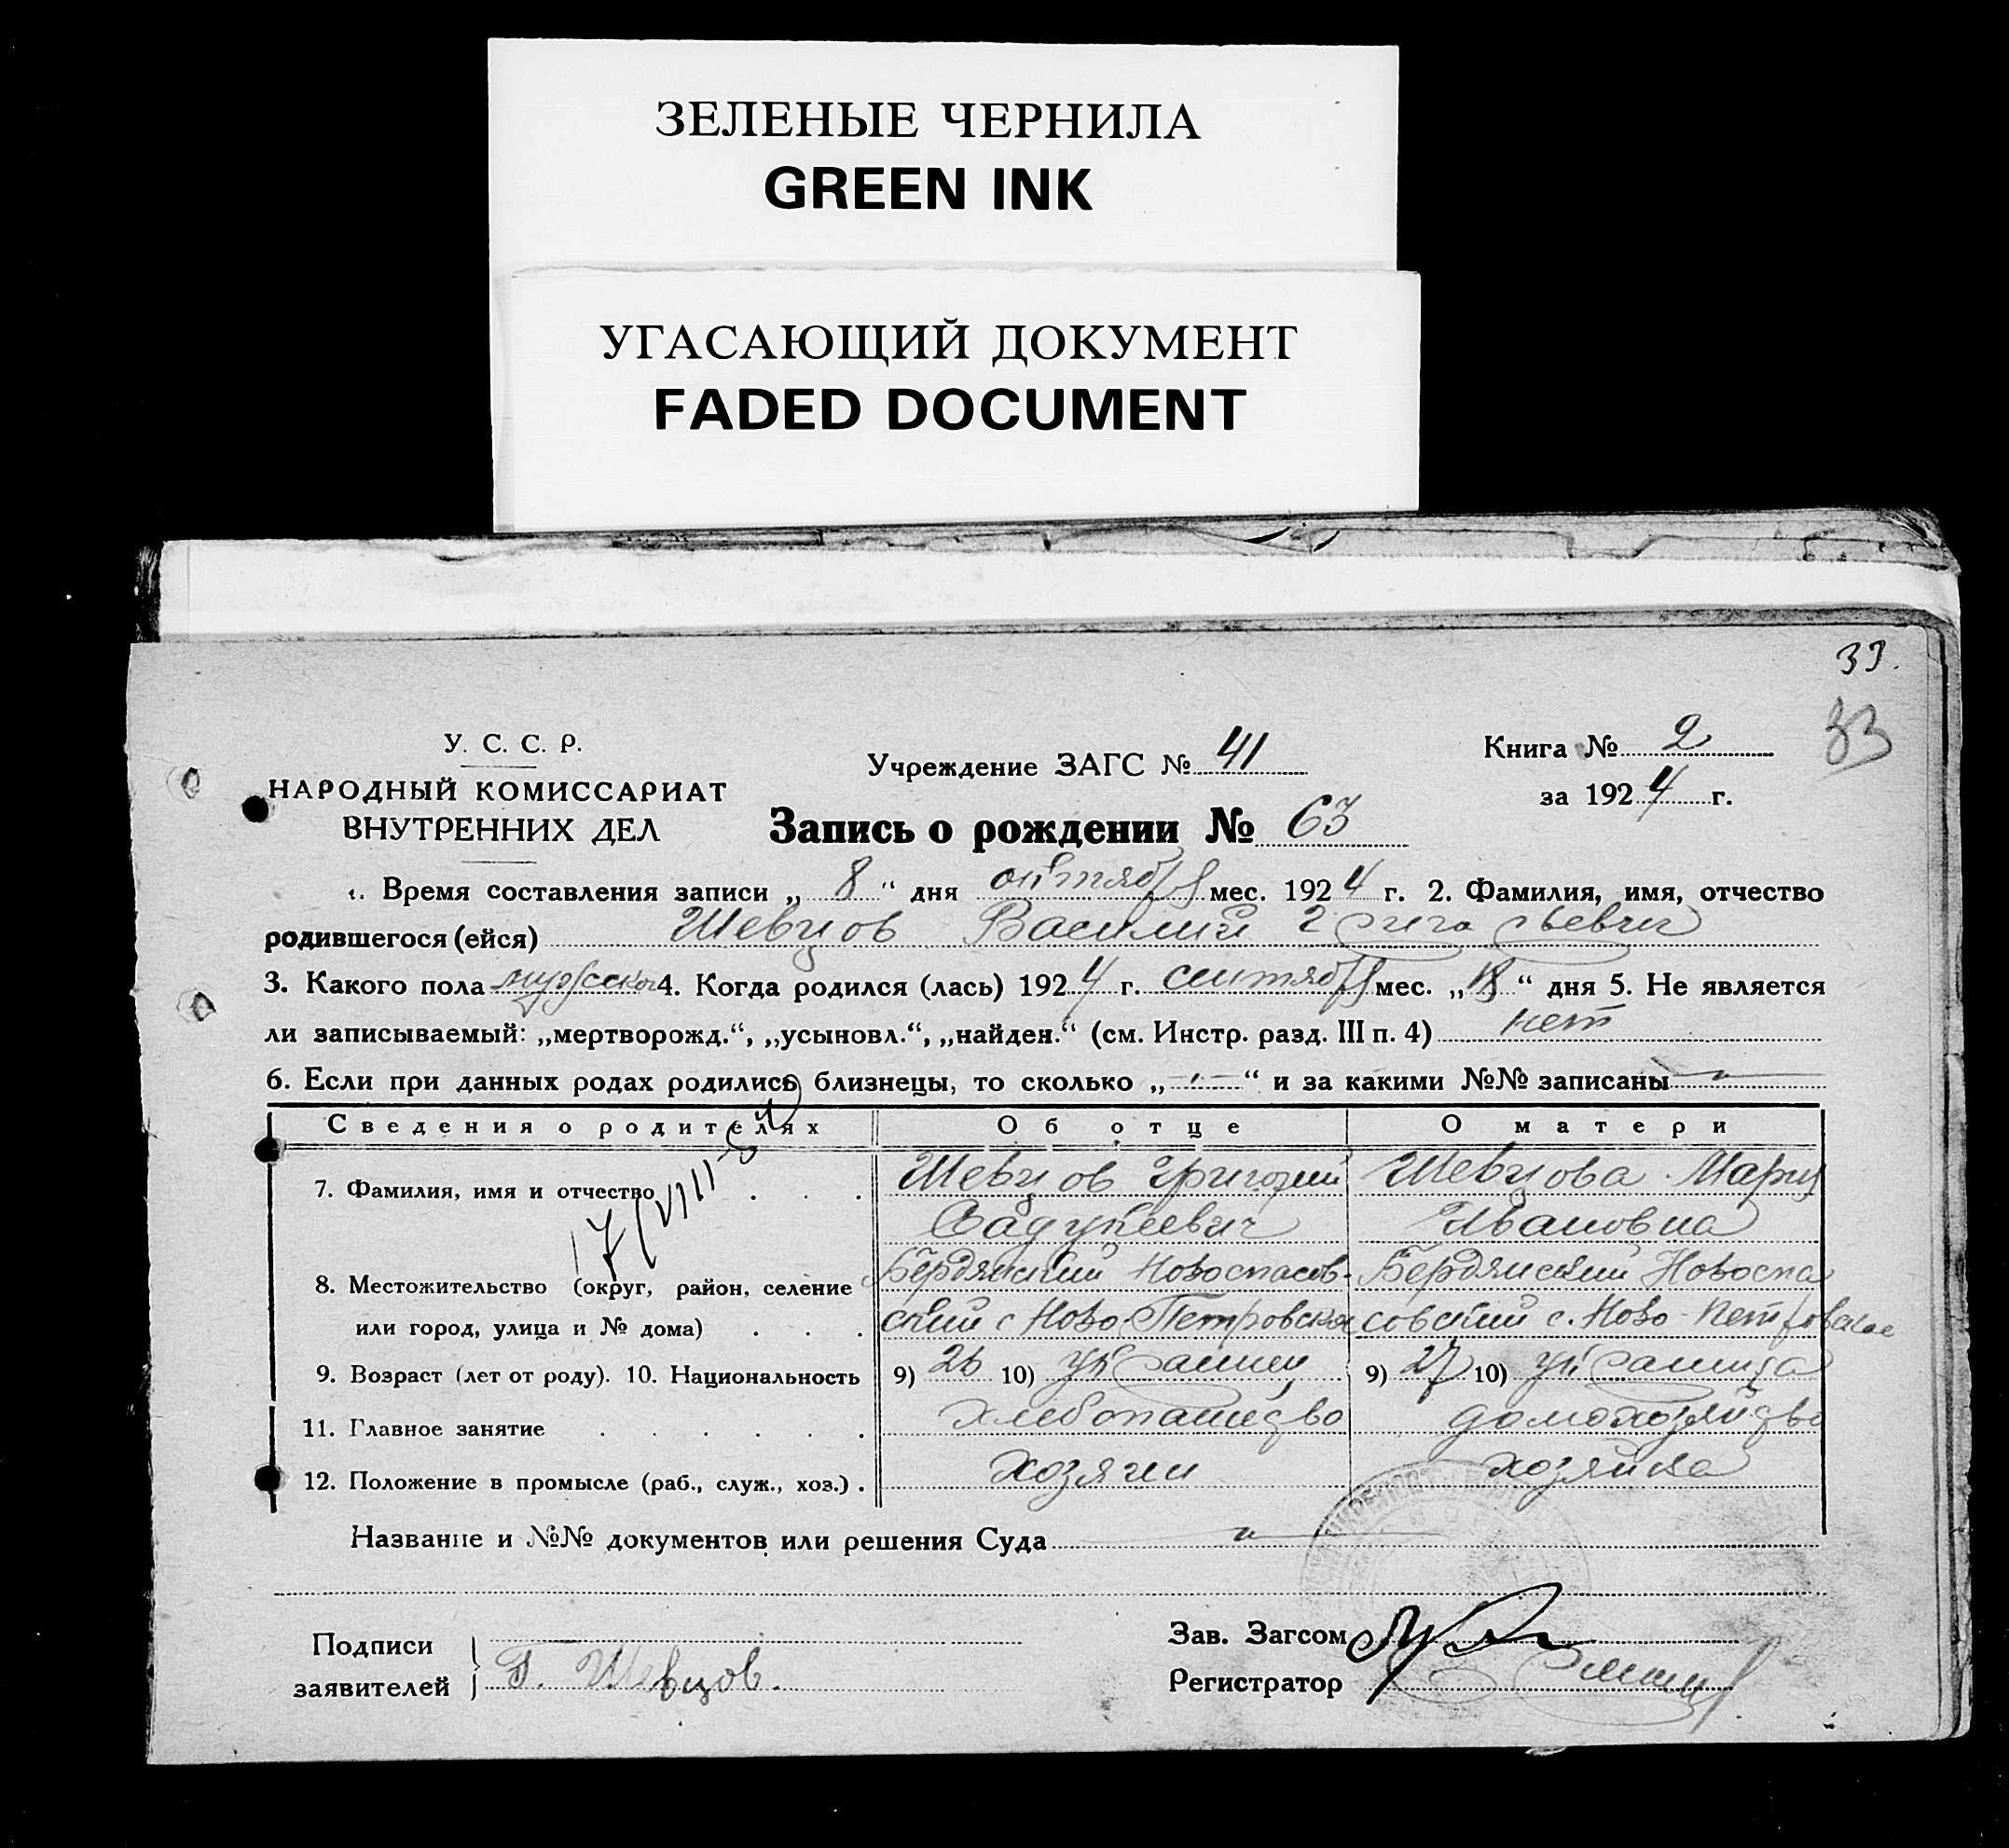 ЗЕЛЕНЫЕ ЧЕРНИЛА
GREEN INK
УГАСАЮЩИЙ ДОКУМЕНТ
FADED DOCUMENT
33.
33
У. С. С. Р.
НАРОДНЫЙ КОМИССАРИАТ
ВНУТРЕННИХ ДЕЛ
Учреждение ЗАГС № 41
Книга № 2
за 1924 г.
Запись о рождении № 63
1. Время составления записи „ 8 “ дня октября мес. 1924 г. 2. Фамилия, имя, отчество
родившегося (ейся) Шевцов Василий Григорьевич
3. Какого пола мужского 4. Когда родился (лась) 1924 г. сентября мес. „ 18 “ дня 5. Не является
ли записываемый: „мертворожд.“, „усыновл.“, „найден.“ (см. Инстр. разд. III п. 4) нет
6. Если при данных родах родились близнецы, то сколько „ — “ и за какими №№ записаны
Сведения о родителях Об отце О матери
7. Фамилия, имя и отчество . . . Шевцов Григорий Шевцова Мария
Ивановна
8. Местожительство (округ, район, селение Бердянский Новоспасов- Бердянский Новоспа
или город, улица и № дома) . . . ский с Ново-Петровская совский с. Ново-Петровская
9. Возраст (лет от роду). 10. Национальность 9) 26 10) украинец 9) 27 10) украинца
11. Главное занятие . . . . . . хлебопашество домохозяйство
12. Положение в промысле (раб., служ., хоз.) . хозяин хозяйка
Название и №№ документов или решения Суда
Подписи
заявителей Г. Шевцов.
Зав. Загсом
Регистратор